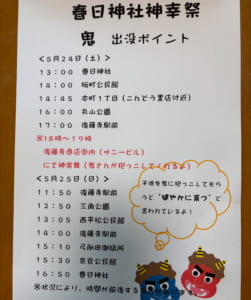 春日神社神幸祭
鬼 出没ポイント
＜５月２４日（土）＞
１３：００ 春日神社
１４：００ 桜町公民館
１４：４５ 本町１丁目（こんどう書店付近）
１６：００ 丸山公園
１７：００ 後藤寺駅前
※１８時～１９時
後藤寺商店街内（サニービル）
にて神楽舞（鬼さんが抱っこしてくれるよ）
＜５月２５日（日）＞
１１：５０ 後藤寺駅前
１２：５０ 三角公園
１３：０５ 西平松公民館
１５：１０ 弓削田御旅所
１５：３０ 公民館
１６：５０ 春日神社
※状況により、時間が前後する
子供を鬼に抱っこしてもら
うと“健やかに育つ”と
言われているよ！